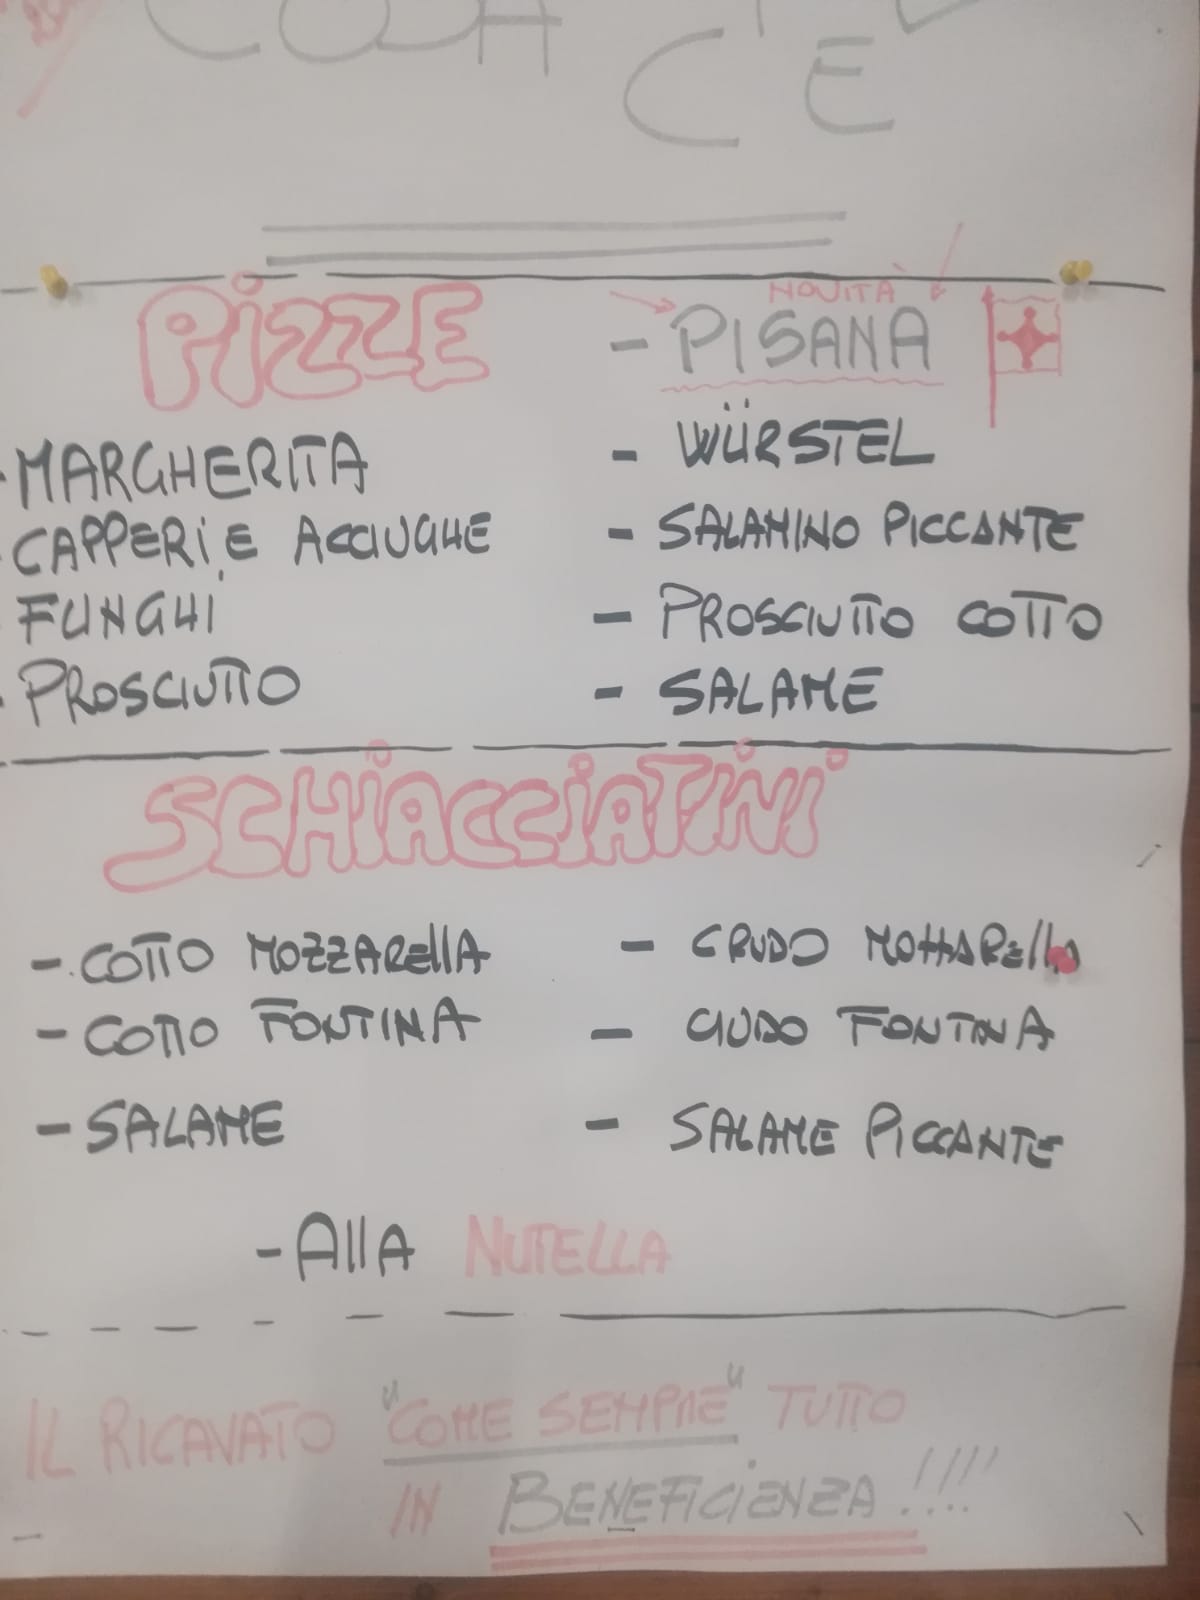 C'È
PIZZE
MARGHERITA
CAPPERI E ACCIUGHE
FUNGHI
PROSCIUTTO
NOVITÀ
- PISANA
- WÜRSTEL
- SALAMINO PICCANTE
- PROSCIUTTO COTTO
- SALAME
SCHIACCIATINI
- COTTO MOZZARELLA
- COTTO FONTINA
- SALAME
- CRUDO MOZZARELLA
- CRUDO FONTINA
- SALAME PICCANTE
- ALLA NUTELLA
IL RICAVATO "COME SEMPRE" TUTTO
IN BENEFICIENZA!!!!